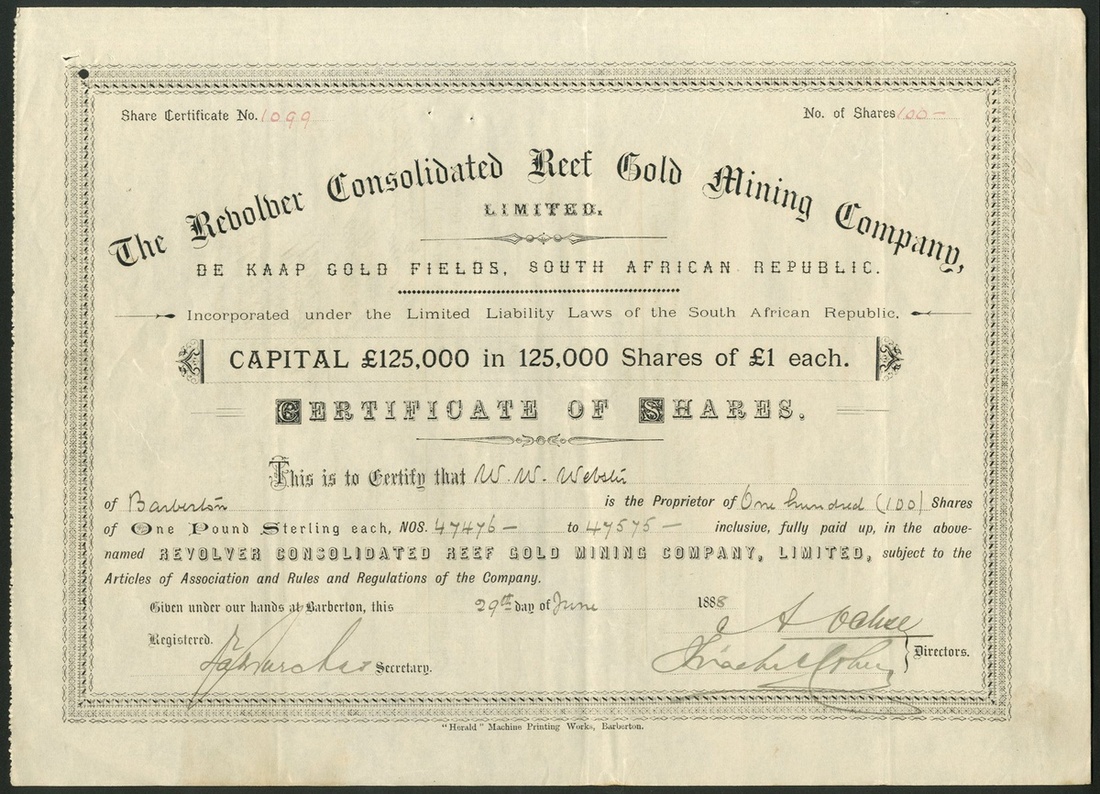 Share Certificate No. 1099
No. of Shares 100 -
The Revolver Consolidated Reef Gold Mining Company,
LIMITED.
DE KAAP GOLD FIELDS, SOUTH AFRICAN REPUBLIC.
Incorporated under the Limited Liability Laws of the South African Republic.
CAPITAL £125,000 in 125,000 Shares of £1 each.
CERTIFICATE OF SHARES.
This is to Certify that W. W. Webster
of Barberton is the Proprietor of One hundred (100) Shares
of One Pound Sterling each, NOS. 47476 - to 47575 - inclusive, fully paid up, in the above-
named REVOLVER CONSOLIDATED REEF GOLD MINING COMPANY, LIMITED, subject to the
Articles of Association and Rules and Regulations of the Company.
Given under our hands at Barberton, this 29th day of June 1888
A Ochse
Registered.
Secretary.
Directors.
"Herald" Machine Printing Works, Barberton.